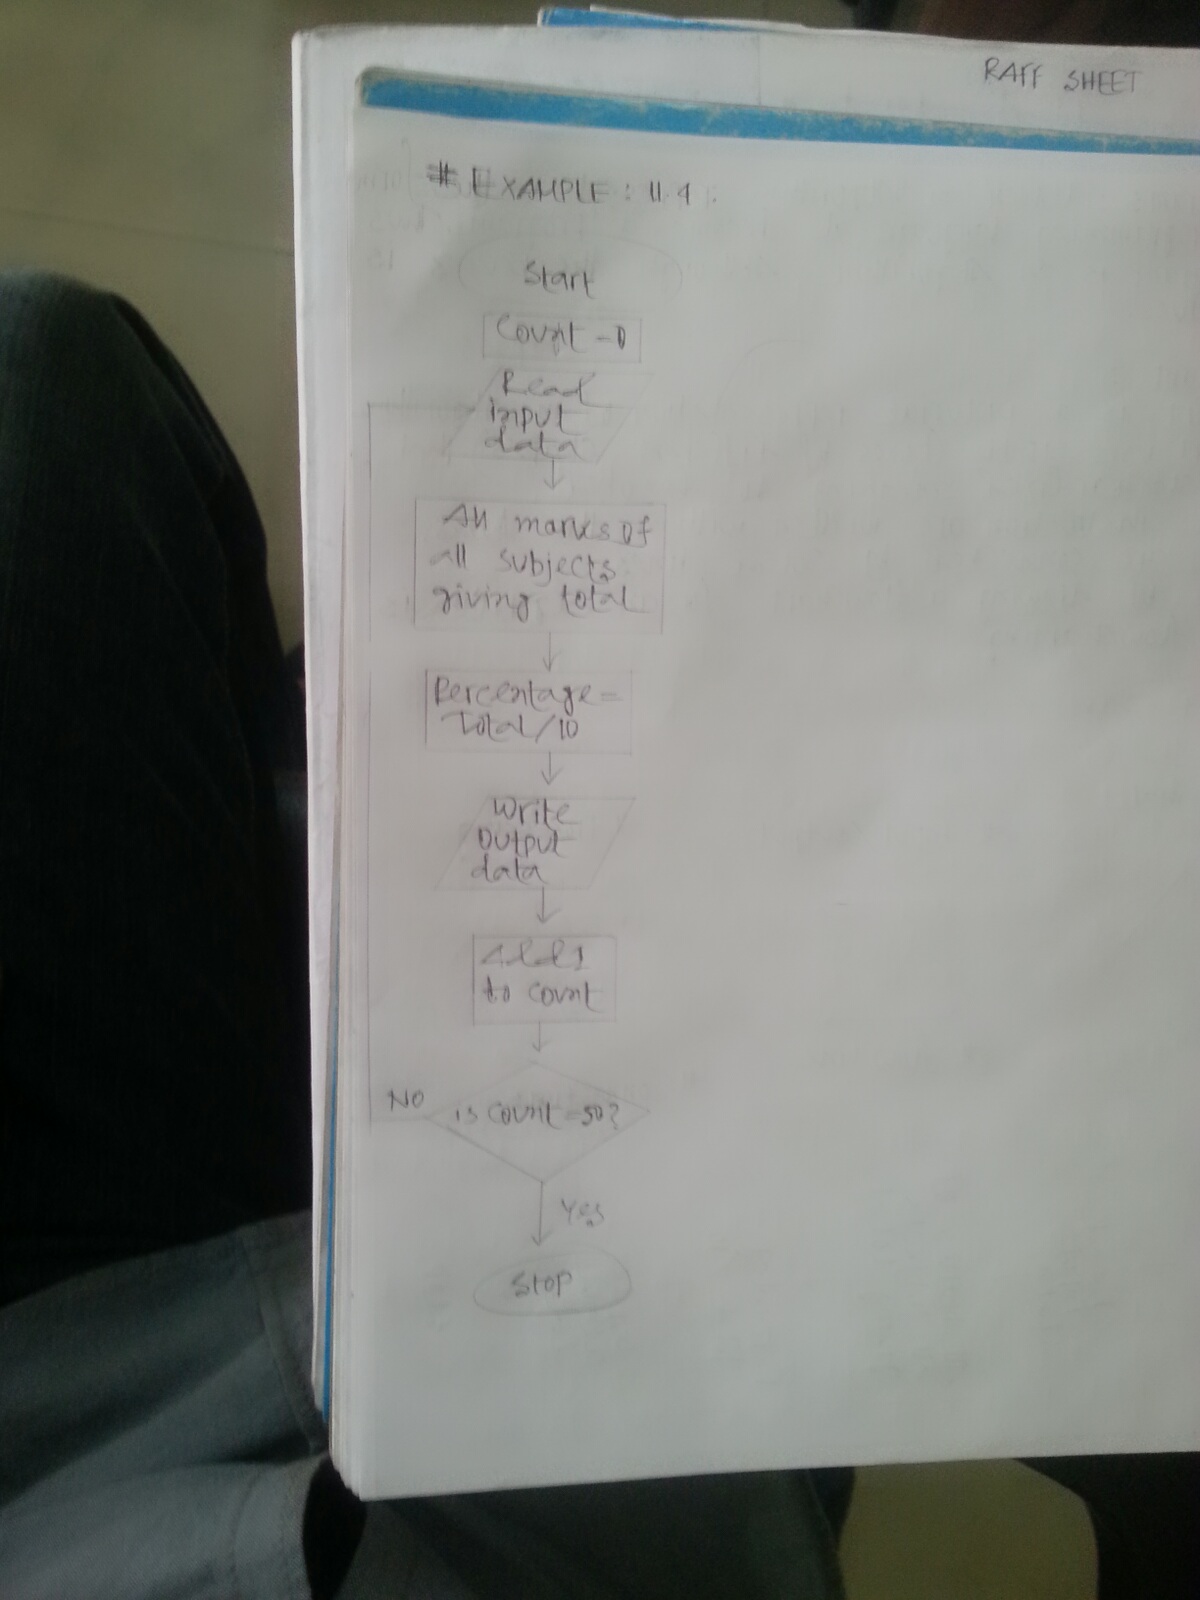 RAFF SHEET
# EXAMPLE : 11.4.
Start
Count - 0
Read
input
data
All marks of
all subjects
giving total
Percentage =
Total/10
Write
Output
data
Add 1
to count
NO
is count = 50?
Yes
Stop